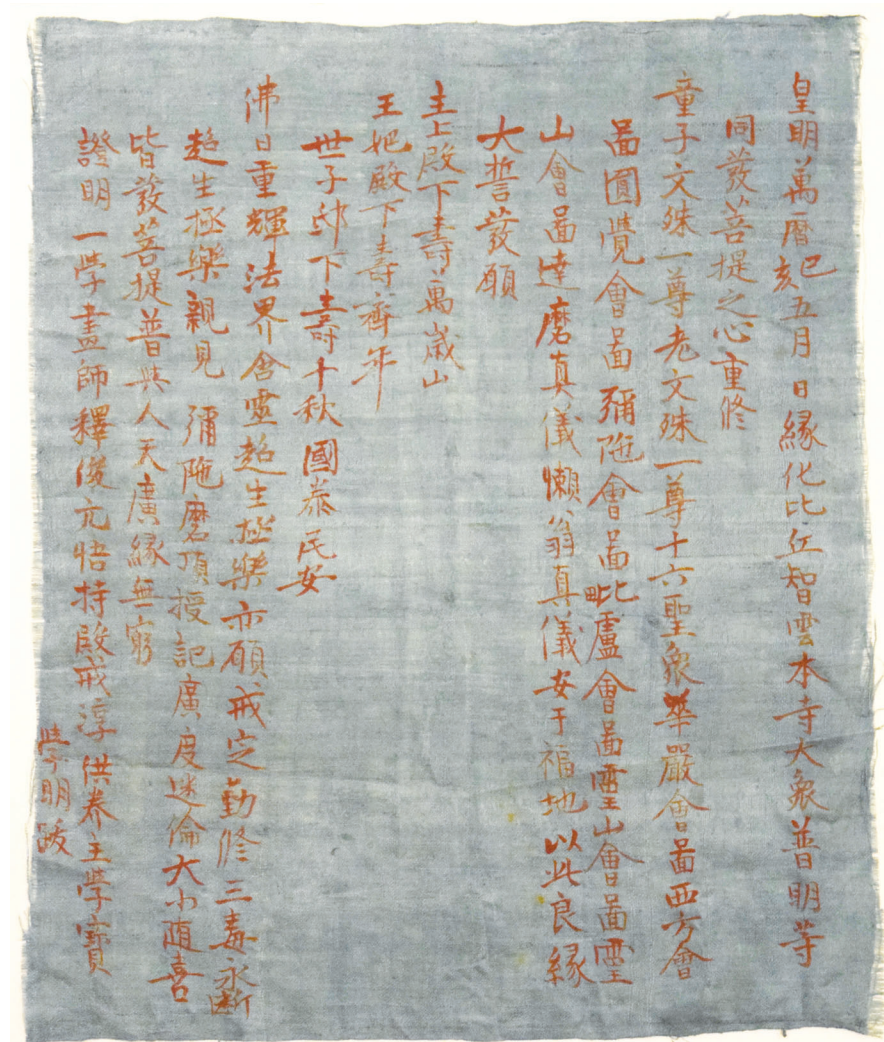 皇明萬曆己亥五月日緣化比丘智雲本寺大衆普明等
同發菩提之心重修
童子文殊一尊老文殊一尊十六聖衆華嚴會啚西方會
啚圓覺會啚彌陁會啚毗盧會啚靈山會啚靈
山會啚達磨真儀懶翁真儀安于福地以此良緣
大誓發願
主上殿下壽萬歲山
王妃殿下壽齊年
世子邸下壽千秋國泰民安
佛日重輝法界含靈超生極樂亦願戒定勤修三毒永斷
超生極樂親見彌陁磨頂授記廣度迷倫大小随喜
皆發菩提普與人天廣緣無窮
證明一學畫師釋俊元悟持殿戒淳供养主學寶
學明跋